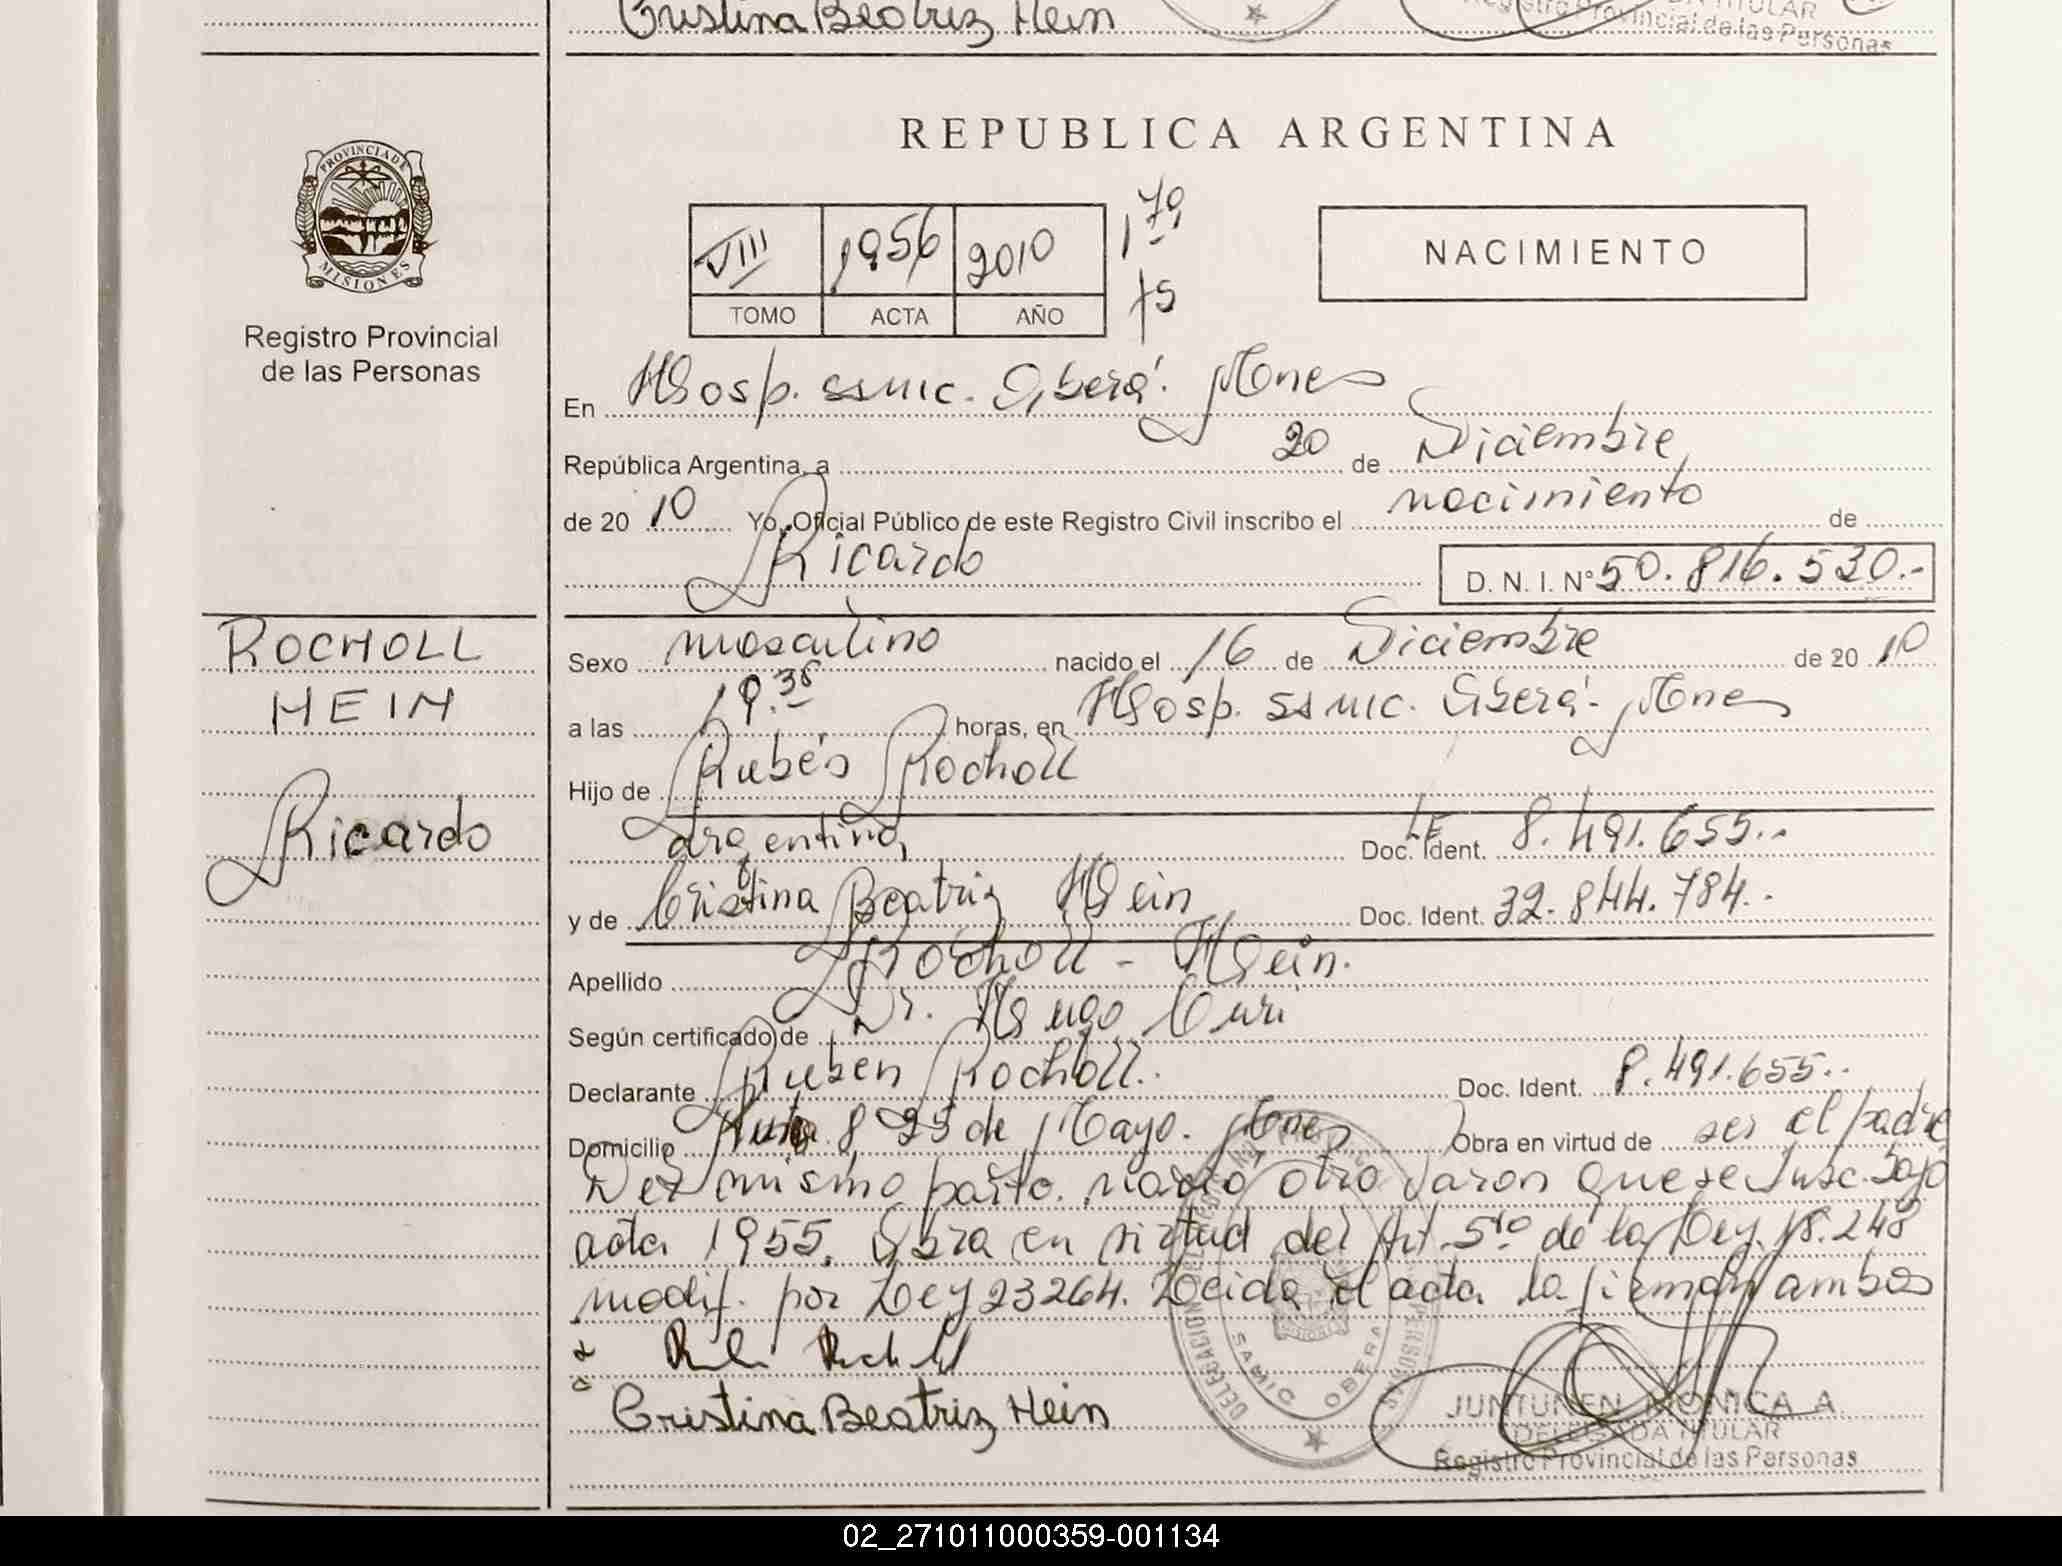 Cristina Beatriz Hein
TITULAR
Registro Provincial de las Personas
REPUBLICA ARGENTINA
PROVINCIA DE MISIONES
Registro Provincial
de las Personas
VIII 1956 2010
TOMO ACTA AÑO
NACIMIENTO
En Hosp. SSMIC. Oberá. Mnes
República Argentina, a 20 de Diciembre
de 20 10 Yo, Oficial Público de este Registro Civil inscribo el nacimiento de
Ricardo D. N. I. N° 50.816.530.-
ROCHOLL
HEIN
Ricardo
Sexo masculino nacido el 16 de Diciembre de 20 10
a las 19.35 horas, en Hosp. SSMIC. Oberá. Mnes
Hijo de Rubén Rocholl
argentino, Doc. Ident. LE 8.491.655.-
y de Cristina Beatriz Hein Doc. Ident. 32.844.784.-
Apellido Rocholl - Hein.
Según certificado de Dr. Hugo Curi
Declarante Ruben Rocholl.. Doc. Ident. 8.491.655..
Domicilio Ruta 8 25 de Mayo. Mnes Obra en virtud de ser el padre
Del mismo parto. nació otro varon que se Insc. bajo
acta 1955. Obra en virtud del Art. 5to de la Ley. 18.248
modif. por Ley 23264. Leida el acta la firman ambos
Cristina Beatriz Hein
DELEGACION
SAMIC OBERA
JUNTUNEN MONICA A.
DELEGADA TITULAR
Registro Provincial de las Personas
02_271011000359-001134